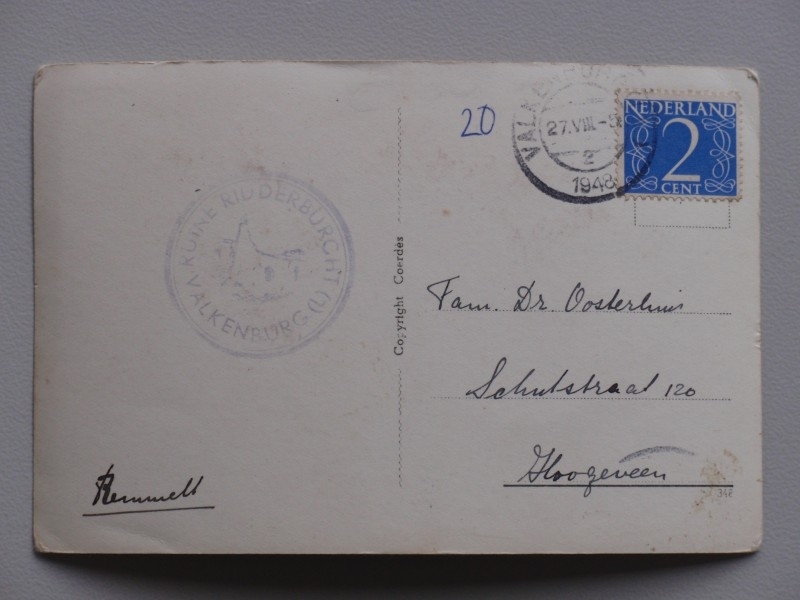 20
VALKENBURG
27.VIII
2
1948
NEDERLAND
2
CENT
RUINE RIDDERBURCHT
VALKENBURG (L)
Copyright Coerdès
Fam. Dr. Oosterhuis
Schutstraat 120
Hoogeveen
Remmelt